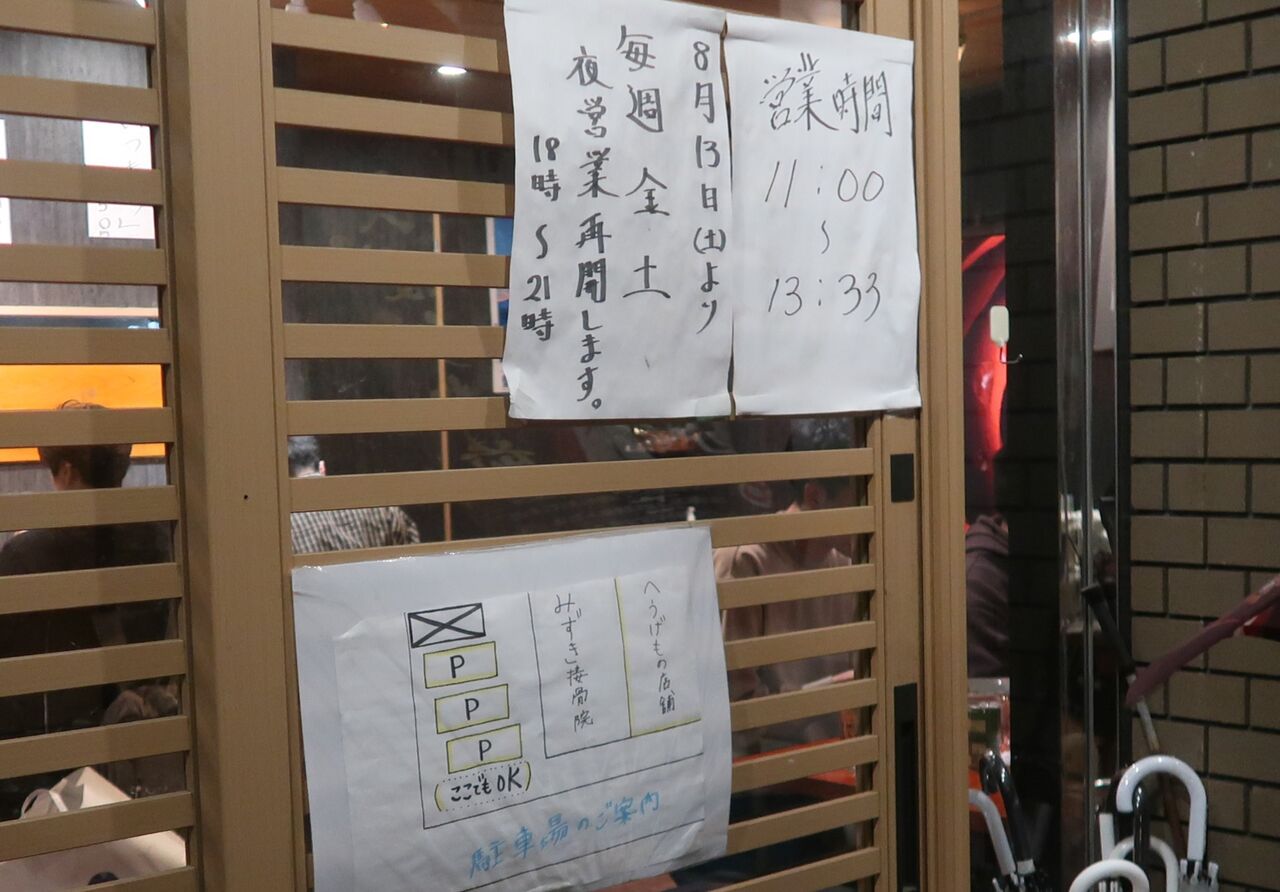 営業時間
11:00
〜
13:33
8月13日(土)より
毎週金土
夜営業再開します。
18時〜21時
へうげもの店舗
みずき接骨院
P
P
P
(ここでもOK)
駐車場のご案内